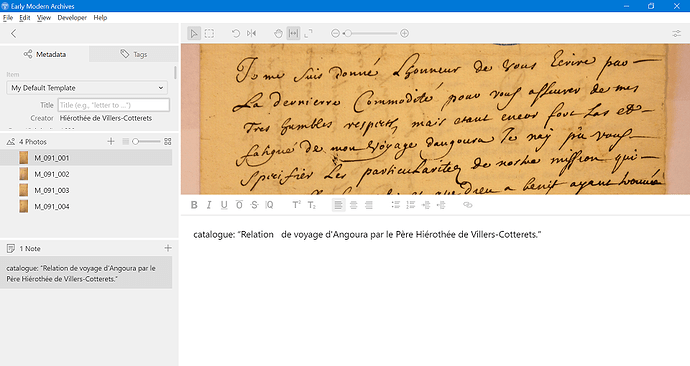 Early Modern Archives
File Edit View Developer Help
Metadata Tags
Item
My Default Template
Title Title (e.g., "letter to ...")
Creator Hiérothée de Villers-Cotterets
4 Photos
M_091_001
M_091_002
M_091_003
M_091_004
1 Note
catalogue: "Relation de voyage d'Angoura par le
Père Hiérothée de Villers-Cotterets."
Je me suis donné Lhonneur de Vous Ecrire par
La dernierre Commodité pour vous assurer de mes
Tres humbles respects, mais etant encor fort las et
fatigué de mon Voyage dangoura Je nay pu vous
Specifier Les particularitez de nostre mission qui
dieu a benit ayant trouvé
B I U O S Q T T
catalogue: "Relation de voyage d'Angoura par le Père Hiérothée de Villers-Cotterets."